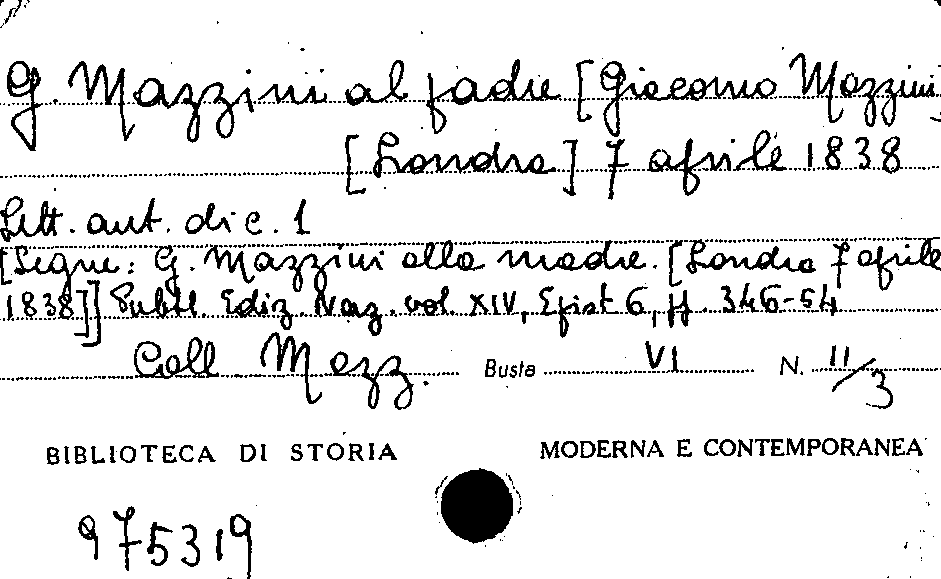 G. Mazzini al padre [Giacomo Mazzini]
[Londra] 7 aprile 1838
Lett. aut. di c. 1
[Segue: G. Mazzini alla madre. [Londra 7 aprile
1838]] Pubbl. Ediz. Naz. vol. XIV, Epist 6, pp. 346-54
Coll. Mazz. Busta VI N. 11/3
BIBLIOTECA DI STORIA MODERNA E CONTEMPORANEA
975319